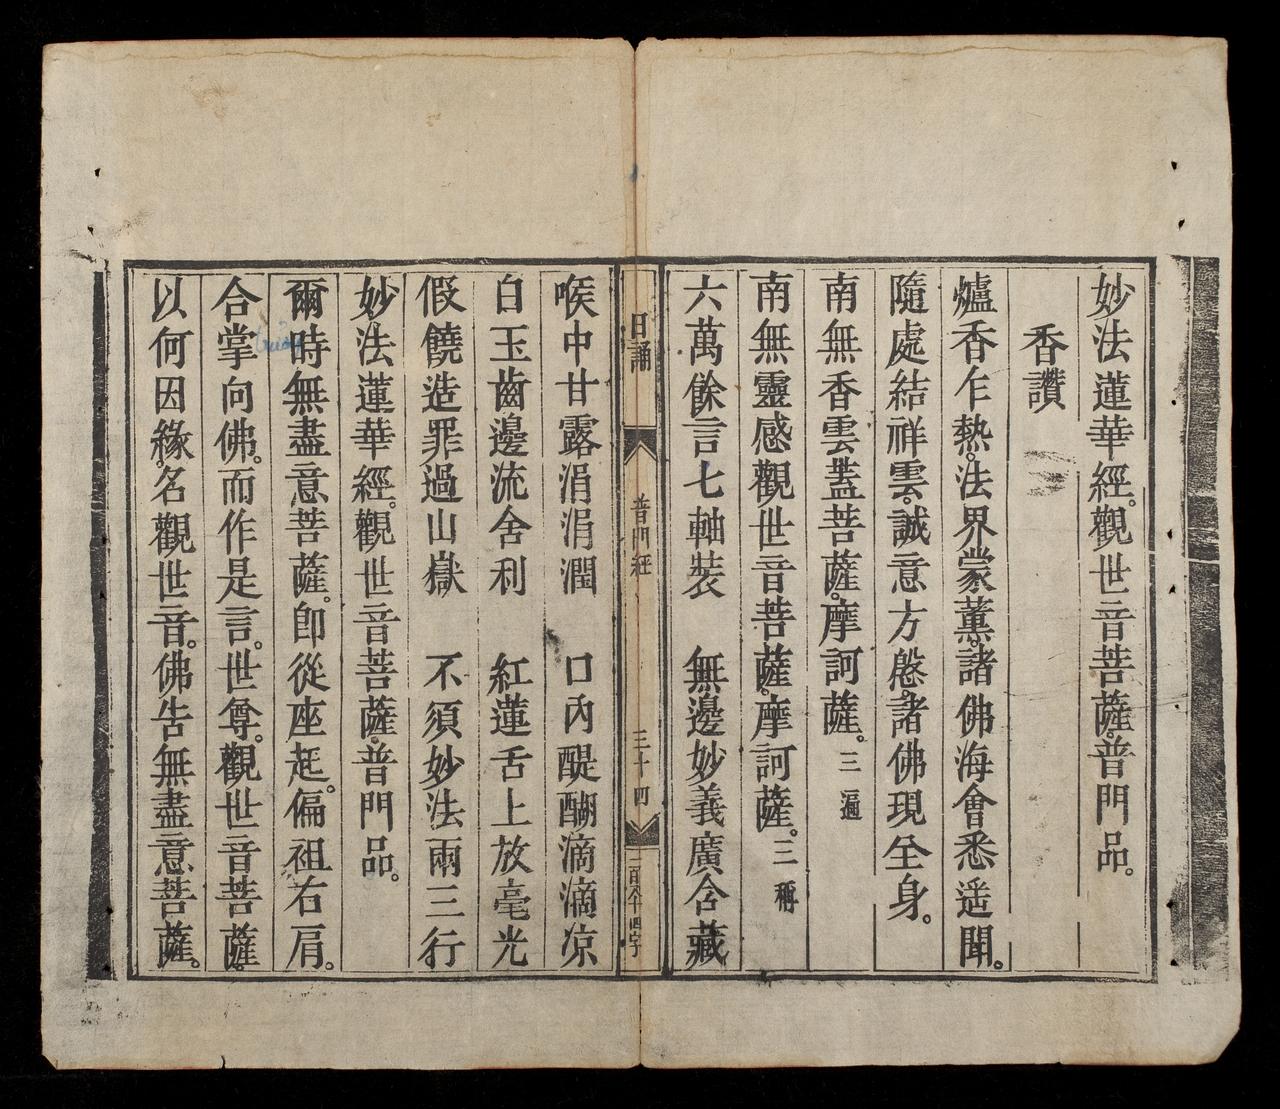 妙法蓮華經。觀世音菩薩。普門品。
香讚
爐香乍熱。法界蒙薰。諸佛海會悉遥聞。
隨處結祥雲。誠意方慇。諸佛現全身。
南無香雲蓋菩薩。摩訶薩。三遍
南無靈感觀世音菩薩。摩訶薩。三稱
六萬餘言七軸裝 無邊妙義廣含藏
日誦 普門經 三十四
喉中甘露涓涓潤 口內醍醐滴滴凉
白玉齒邊流舍利 紅蓮舌上放毫光
假饒造罪過山嶽 不須妙法兩三行
妙法蓮華經。觀世音菩薩。普門品。
爾時無盡意菩薩。卽從座起。偏袒右肩。
合掌向佛。而作是言。世尊。觀世音菩薩。
以何因緣。名觀世音。佛告無盡意菩薩。